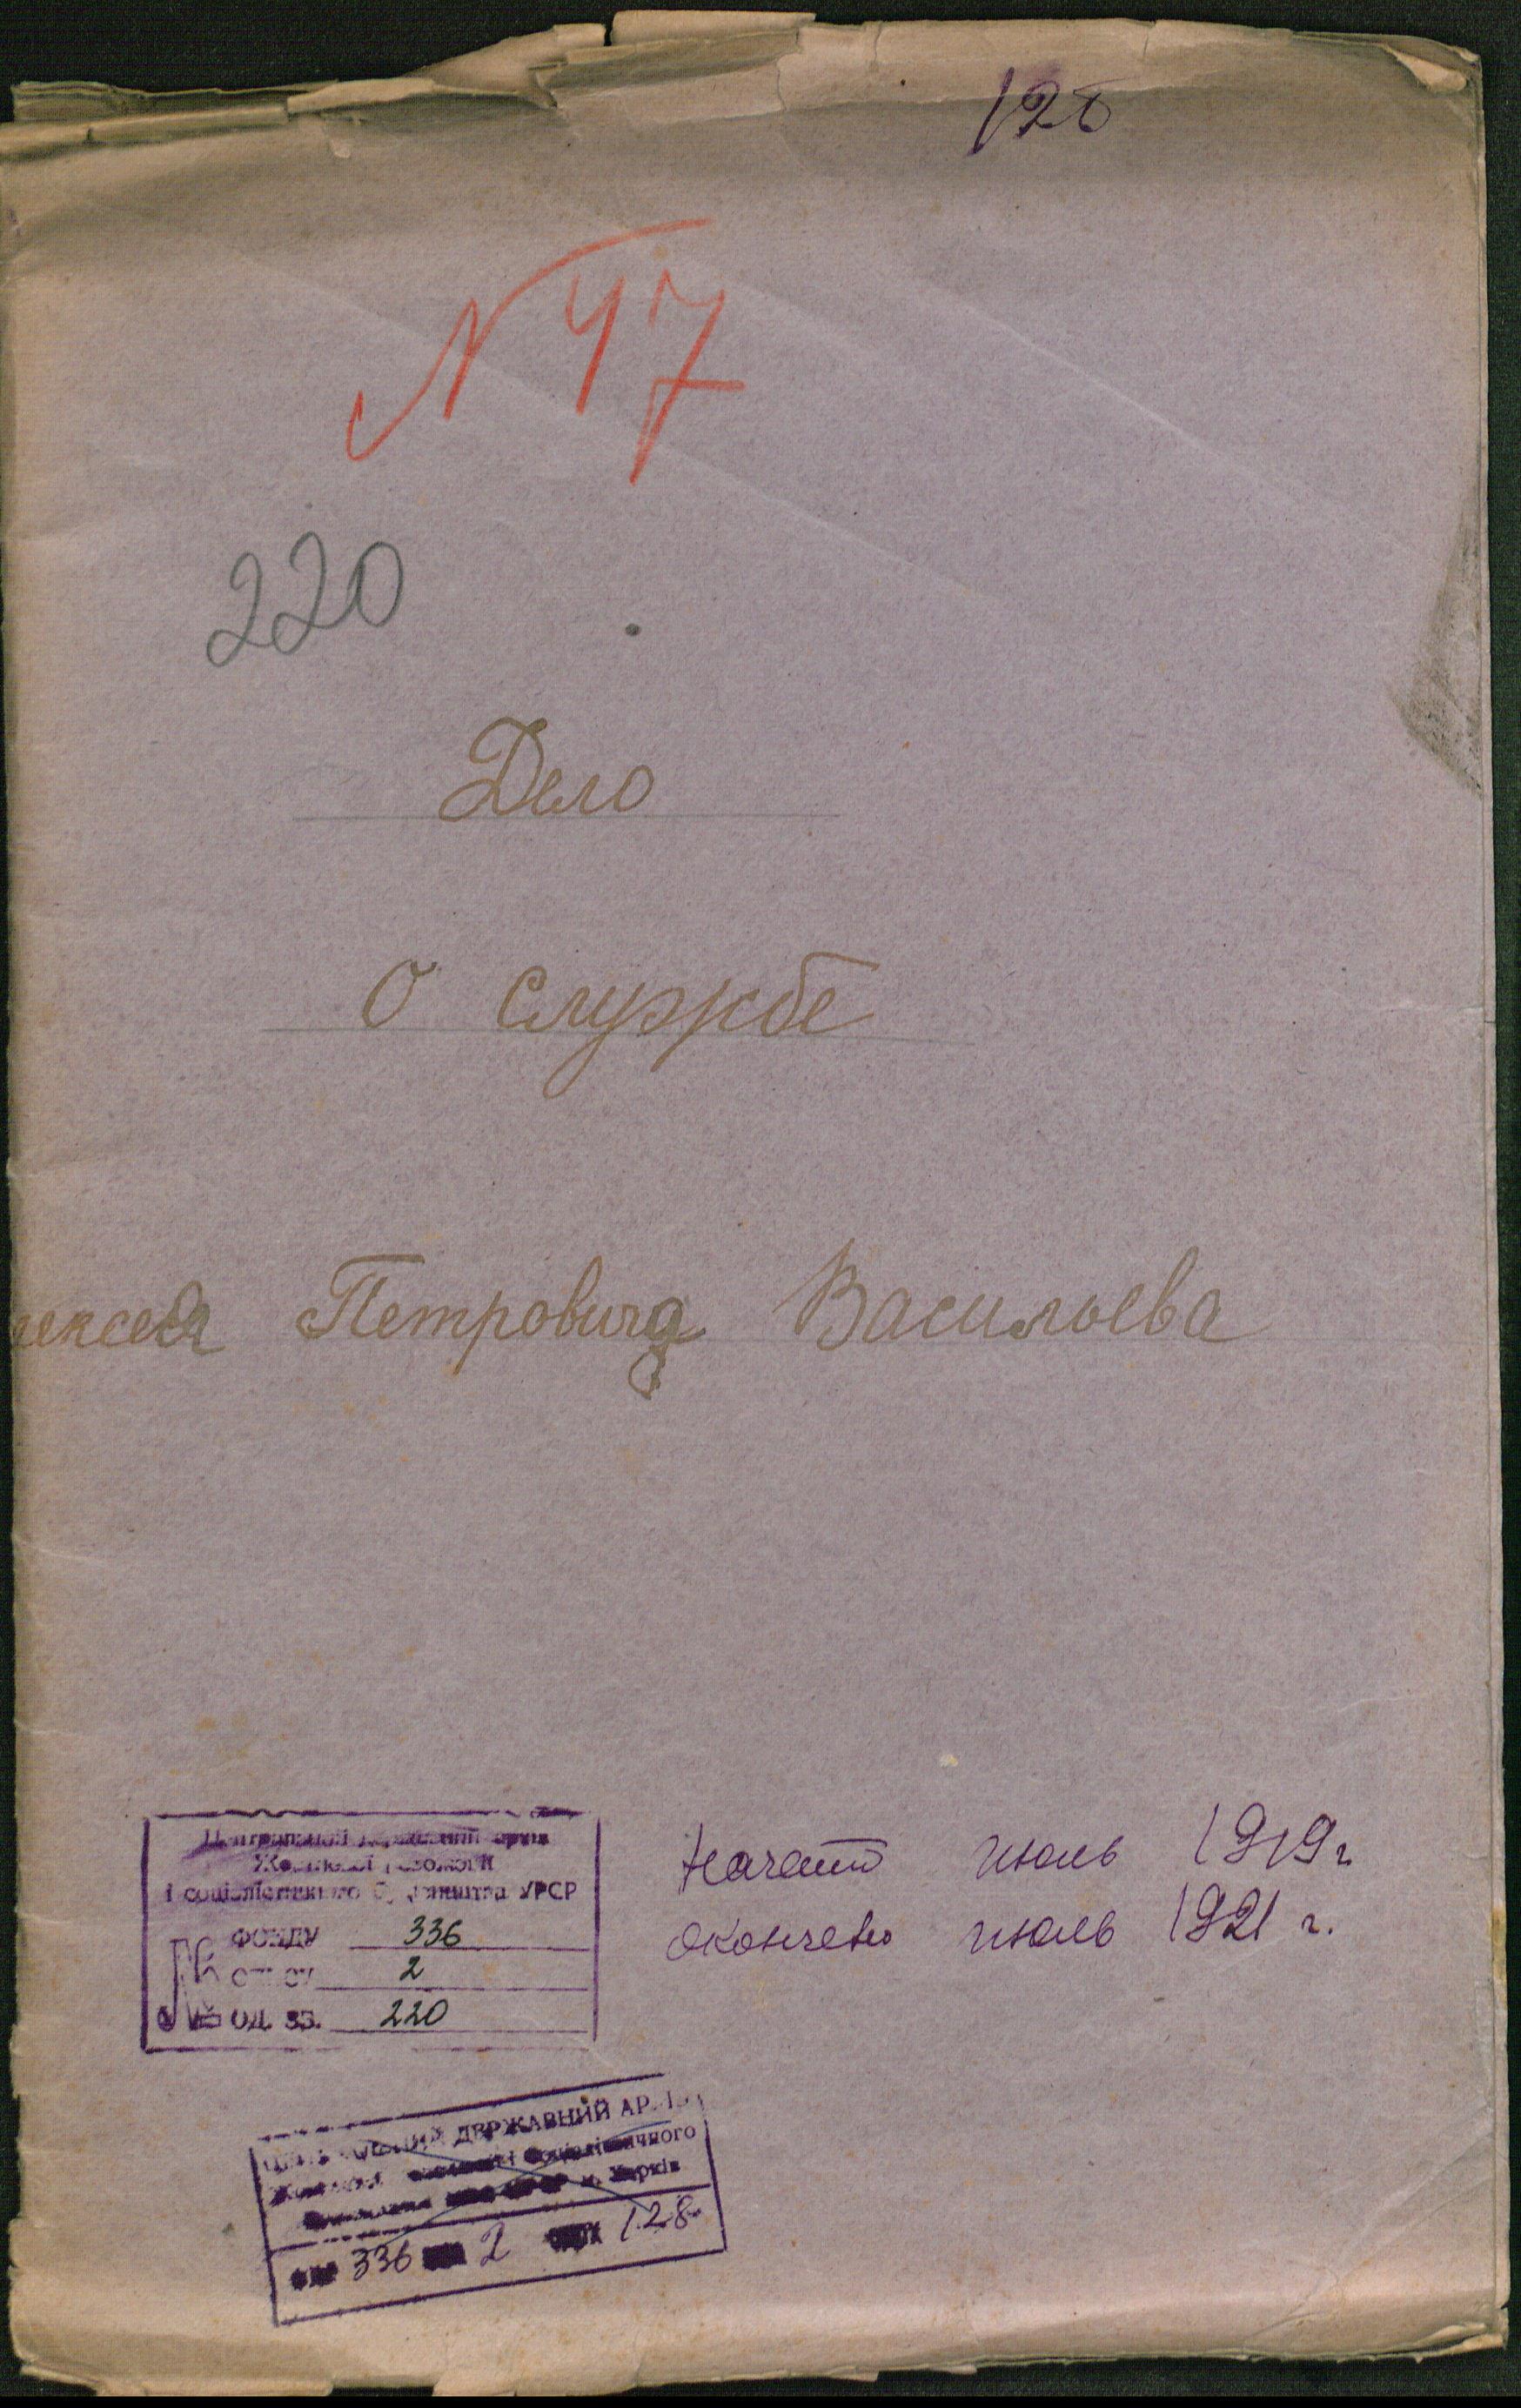 128
N 47
220
Дело
О службе
лексея Петровича Васильева
Центральний державний архів
Жовтневої революції
і соціалістичного будівництва УРСР
№ ФОНДУ 336
ОПИСУ 2
№ ОД. ЗБ. 220
Начато июль 1919 г
окончено июль 1921 г.
ДЕРЖАВНИЙ АРХІВ
соціалістичного
м. Харків
336 2 128